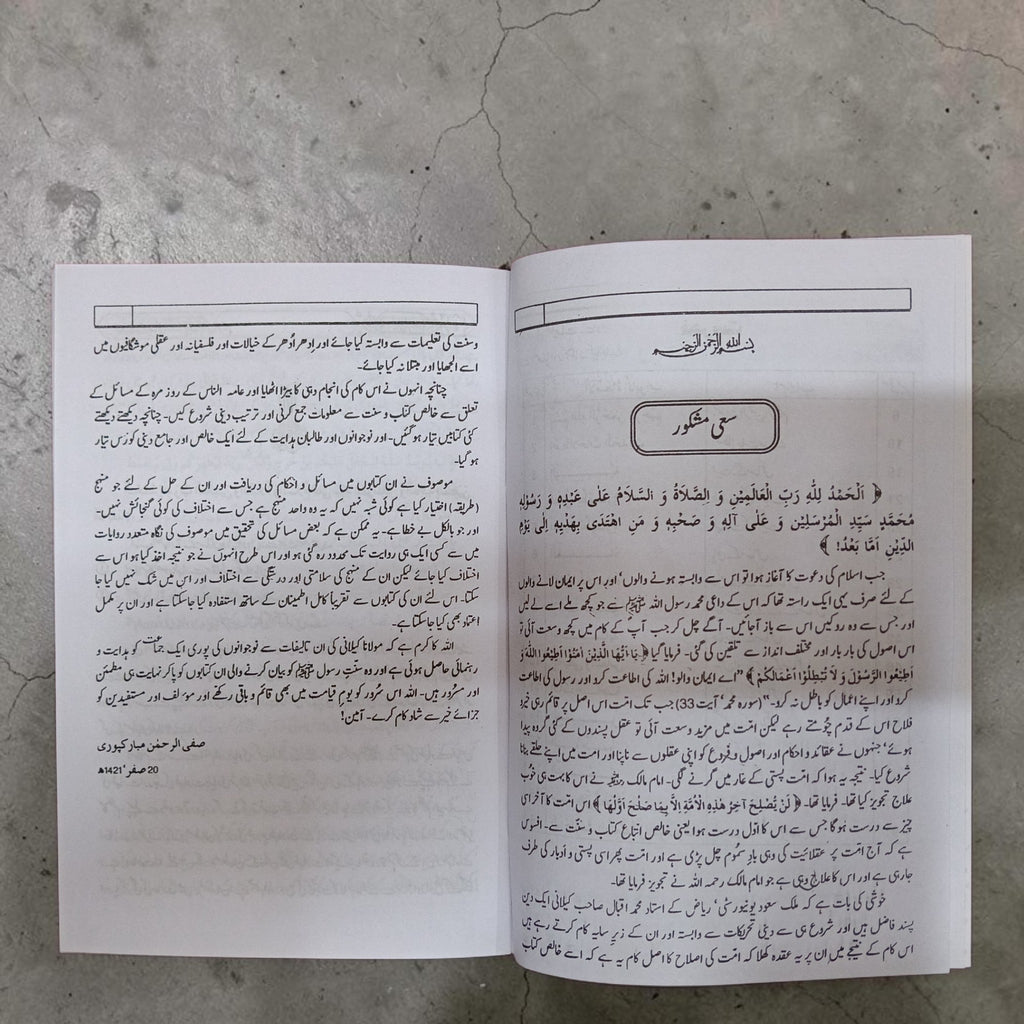 بسم اللہ الرحمٰن الرحیم
سعی مشکور
﴿ اَلْحَمْدُ لِلّٰهِ رَبِّ الْعَالَمِيْنَ وَ الصَّلَاةُ وَ السَّلَامُ عَلٰى عَبْدِهٖ وَ رَسُوْلِهٖ
مُحَمَّدٍ سَيِّدِ الْمُرْسَلِيْنَ وَ عَلٰى آلِهٖ وَ صَحْبِهٖ وَ مَنِ اهْتَدٰى بِهَدْيِهٖ اِلٰى يَوْمِ
الدِّيْنِ اَمَّا بَعْدُ! ﴾
جب اسلام کی دعوت کا آغاز ہوا تو اس سے وابستہ ہونے والوں‘ اور اس پر ایمان لانے والوں
کے لئے صرف یہی ایک راستہ تھا کہ اس کے داعی محمد رسول اللہ ﷺ سے جو کچھ ملے اسے لے لیں
اور جس سے وہ روکیں اس سے باز آجائیں۔ آگے چل کر جب آپ کے کام میں کچھ وسعت آئی تو
اس اصول کی بار بار اور مختلف انداز سے تلقین کی گئی۔ فرمایا گیا ﴿ يٰاَيُّهَا الَّذِيْنَ اٰمَنُوْا اَطِيْعُوا اللّٰهَ وَ
اَطِيْعُوا الرَّسُوْلَ وَ لَا تُبْطِلُوْا اَعْمَالَكُمْ ﴾ ”اے ایمان والو! اللہ کی اطاعت کرو اور رسول کی اطاعت
کرو اور اپنے اعمال کو باطل نہ کرو۔“ (سورہ محمد‘ آیت 33) جب تک امت اس اصل پر قائم رہی خیرو
فلاح اس کے قدم چومتے رہے لیکن امت میں مزید وسعت آئی تو عقل پسندوں کے کئی گروہ پیدا
ہوئے‘ جنہوں نے عقائد و احکام اور اصول و فروع کو اپنی عقلوں سے ناپنا اور امت میں اپنے حلقے بنانا
شروع کیا۔ نتیجہ یہ ہوا کہ امت پستی کے غار میں گرنے لگی۔ امام مالک رحمہ اللہ نے اس کا بہت ہی خوب
علاج تجویز کیا تھا۔ فرمایا تھا۔ ﴿ لَنْ يُصْلِحَ آخِرَ هٰذِهِ الْاُمَّةِ اِلَّا بِمَا صَلُحَ اَوَّلُهَا ﴾ اس امت کا آخر اسی
چیز سے درست ہو گا جس سے اس کا اول درست ہوا یعنی خالص اتباع کتاب و سنت سے۔ افسوس
ہے کہ آج امت پر عقلائیت کی وہی بادِ سموم چل پڑی ہے اور امت پھر اسی پستی و ادبار کی طرف
جارہی ہے اور اس کا علاج وہی ہے جو امام مالک رحمہ اللہ نے تجویز فرمایا تھا۔
خوشی کی بات ہے کہ ملک سعود یونیورسٹی‘ ریاض کے استاد محمد اقبال صاحب کیلانی ایک دین
پسند فاضل ہیں اور شروع ہی سے دینی تحریکات سے وابستہ اور ان کے زیر سایہ کام کرتے رہے ہیں
اس کام کے نتیجے میں ان پر یہ عقدہ کھلا کہ امت کی اصلاح کا اصل کام یہ ہے کہ اسے خالص کتاب
و سنت کی تعلیمات سے وابستہ کیا جائے اور اِدھر اُدھر کے خیالات اور فلسفیانہ اور عقلی موشگافیوں میں
اسے الجھایا اور مبتلا نہ کیا جائے۔
چنانچہ انہوں نے اس کام کی انجام دہی کا بیڑا اٹھایا اور عامہ الناس کے روز مرہ کے مسائل کے
تعلق سے خالص کتاب و سنت سے معلومات جمع کرنی اور ترتیب دینی شروع کیں۔ چنانچہ دیکھتے دیکھتے
کئی کتابیں تیار ہو گئیں۔ اور نوجوانوں اور طالبان ہدایت کے لئے ایک خالص اور جامع دینی کورس تیار
ہو گیا۔
موصوف نے ان کتابوں میں مسائل و احکام کی دریافت اور ان کے حل کے لئے جو منہج
(طریقہ) اختیار کیا ہے کوئی شبہ نہیں کہ یہ وہ واحد منہج ہے جس سے اختلاف کی کوئی گنجائش نہیں۔
اور جو بالکل بے خطا ہے۔ یہ ممکن ہے کہ بعض مسائل کی تحقیق میں موصوف کی نگاہ متعدد روایات
میں سے کسی ایک ہی روایت تک محدود رہ گئی ہو اور اس طرح انہوں نے جو نتیجہ اخذ کیا ہو اس سے
اختلاف کیا جائے لیکن ان کے منہج کی سلامتی اور درستگی سے اختلاف اور اس میں شک نہیں کیا جا
سکتا۔ اس لئے ان کی کتابوں سے تقریباً کامل اطمینان کے ساتھ استفادہ کیا جاسکتا ہے اور ان پر مکمل
اعتماد بھی کیا جا سکتا ہے۔
اللہ کا کرم ہے کہ مولانا کیلانی کی ان تالیفات سے نوجوانوں کی پوری ایک جماعت کو ہدایت و
رہنمائی حاصل ہوئی ہے اور وہ سنتِ رسول ﷺ کو بیان کرنے والی ان کتابوں کو پاکر نہایت ہی مطمئن
اور مسرور ہیں۔ اللہ اس سرور کو یومِ قیامت میں بھی قائم و باقی رکھے اور مؤلف اور مستفیدین کو
جزائے خیر سے شاد کام کرے۔ آمین!
صفی الرحمٰن مبارکپوری
20 صفر‘ 1421ھ